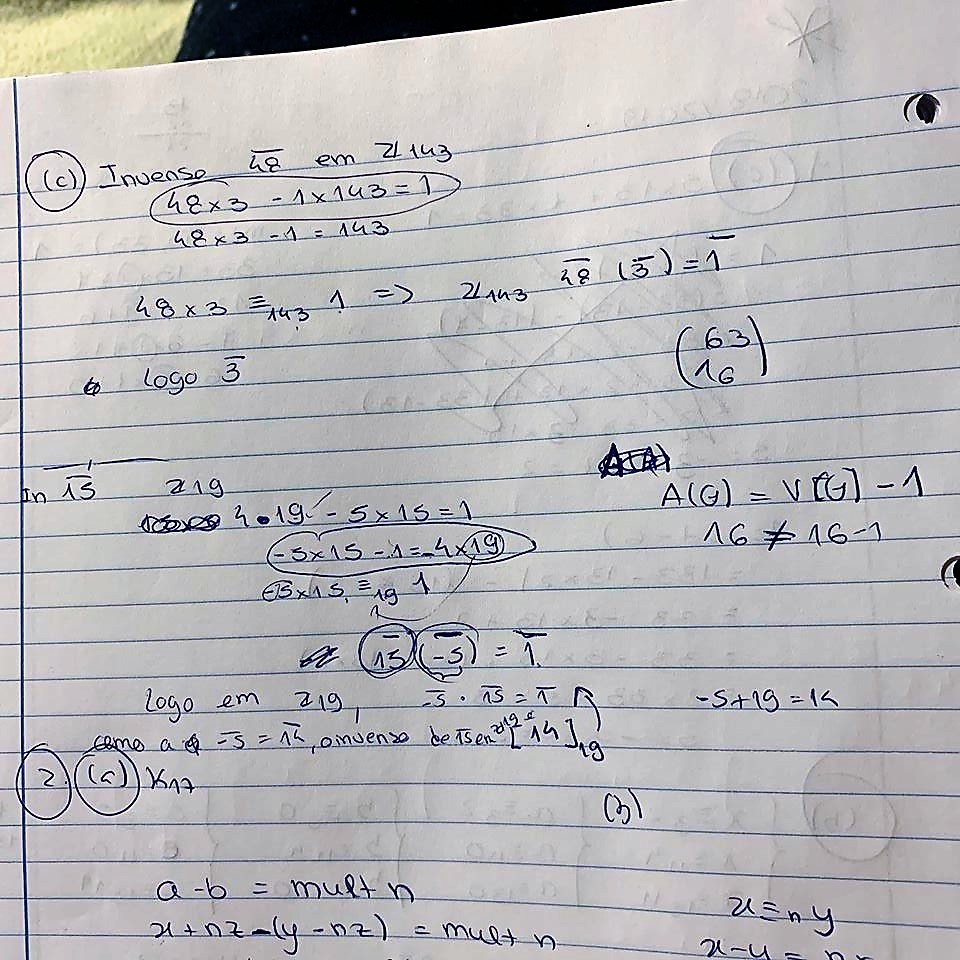 (c) Inverso 48̅ em ℤ143
48×3 - 1×143 = 1
48×3 - 1 = 143
48×3 ≡₁₄₃ 1 => ℤ143 48̅ (3̅) = 1̅
logo 3̅
(63
16)
In 15̅ ℤ19
4•19 - 5×15 = 1
-5×15 - 1 = -4×19
-5×15 ≡₁₉ 1
(15̅)(-5̅) = 1̅
A(G) = V[G] - 1
16 ≠ 16-1
Logo em ℤ19, -5̅ · 15̅ = 1̅
-5+19 = 14
como a -5̅ = 14̅, o inverso de 15̅ en ℤ19 é [14]₁₉
2. (a) K₁₇
(3)
a-b = mult n
x+nz-(y-nz) = mult n
x ≡ₙ y